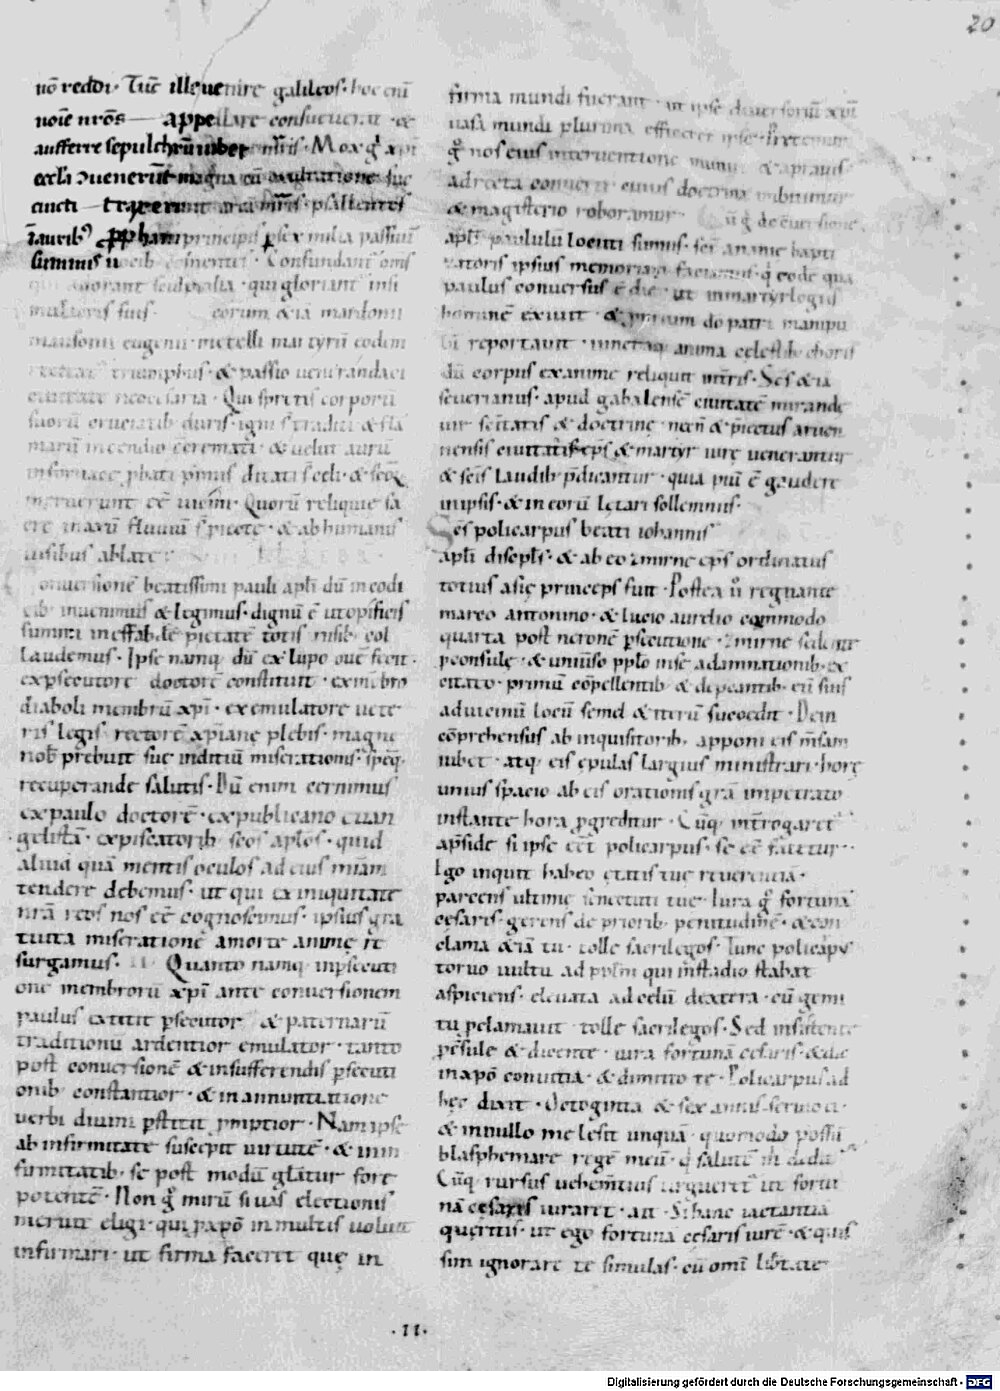 20
nõ reddi · Tũc ille uenire galileos · hoc eni
noīe nr̄os appellare consueuerat · &
aufferre sepulchrū iubet · Mox
magna cū exultatione suc
cincti traxerunt mr̄is · psallentes
principis milia passiuū
summis Confundant̄ om̄s
qui adorant sculptilia · qui gloriant̄
eorum &iā mardonii
musonii eugenii · metelli martyrū eodem
triumphus · & passio uenerandaei
Qui spretis corporū
suorū cruciatib duris · igni s̄ traditi & fla
marū incendio cremati · & uelut aurū
meruerunt eē Quorū reliquie sa
cre in axū fluuiū & ab humanis
uisibus ablatę
onuersionē beatissimi pauli apl̄i dū in codi
cib inuenimus & legimus · dignū ē ut opificis
summi ineffabile pietatē totis nisib col
laudemus · Ipse namq dū ex lupo ouē fecit ·
ex psecutore doctorē constituit · ex mēbro
diaboli membrū xp̄i · ex emulatore uete
ris legis rectorē xp̄iane plebis · magnę
nob prebuit suę inditiū miserationis · speq
recuperande salutis · Dū enim cernimus
ex paulo doctorē · ex publicano euan
gelistā · ex piscatorib sc̄os aplos · quid
aliud quā mentis oculos ad eius mīam
tendere debemus · ut qui ex iniquitate
nr̄a reos nos eē cognoscimus · ipsius gra
tuita miseratione a morte animę re
surgamus · Quanto namq in psecuti
one membrorū xp̄i ante conuersionem
paulus extitit psecutor & paternarū
traditionū ardentior emulator · tanto
post conuersionē & in sufferendis psecuti
onib constantior · & in annuntiatione
uerbi diuini pstitit pmptior · Nam ipse
ab infirmitate suscepit uirtutē · & in in
firmitatib · se post modū gl̄atur fore
potentē · Non g̊ mirū si uas electionis
meruit eligi · qui p xp̄o in multis uoluit
infirmari · ut firma faceret quę in
firma mundi fuerant · ut ipse xp̄i
uasa mundi plurima efficeret ipse · Preterea
g̊ nos eius interuentione &
ad recta conuerti cuius doctrina imbuimur
& magisterio roboramur ū q̄ de cuersione
apl̄i paululū locuti sumus · sc̄i ananię bapti
zatoris ipsius memoriam faciamus · q̄ eodē qua
paulus conuersus ē die · ut in martyrlogiis
hominē exiuit · & patri manipu
reportauit · iunctaq anima celestib choris
dū corpus exanime reliquit mr̄is · Sc̄s &iā
seuerianus · apud gabalensē ciuitatē mirandę
uir sc̄itatis & doctrinę · necn̄ & piectus aruer
nensis ciuitatis ep̄s & martyr iure uenerantur
& sc̄is laudib pdicantur · quia piū ē gaudere
in ipsis · & in eorū lętari sollemniis ·
Sc̄s policarpus beati iohannis
apl̄i discpl̄s · & ab eo zmirnę ep̄s ordinatus
totius asię princeps fuit · Postea ū regnante
marco antonino · & lucio aurelio cōmodo
quarta post neronē psecutione · zmirnę sedente
pconsule · & uniuso pplo in se adamnationib · ex
citato · primū cōpellentib & depcantib · eū suis
ad uicinū locū semel & iterū succedit · Dein
cōprehensus ab inquisitorib · apponi eis m̄sam
iubet · atq eis epulas largius ministrari · horę
unius spacio ab eis orationis grā impetrato
instante hora pgreditur · Cūq int̄rogaret̄
apside si ipse eēt policarpus · se eē fatetur ·
Ego inquit habeo etatis tuę reuerentiā ·
parcens ultimę senectuti tuę · Iura g̊ fortunā
cesaris · gerens de priorib penitudinē · & con
clama &iā tu · tolle sacrilegos · Tunc policarp
toruo uultu ad pplm̄ qui in stadio stabat
aspiciens · eleuata ad celū dextera · cū gemi
tu pclamauit tolle sacrilegos · Sed insistente
pc̄sule & dicente · iura fortunā cesaris · & dic
in xp̄o conuitia · & dimitto te · Policarpus ad
hęc dixit · Octoginta & sex annis seruio ei ·
& in nullo me lesit unquā · quomodo possū
blasphemare regē meū · q̄ salutē m̄ dedit
Cūq rursus uehemtius urgueret̄ ut fortu
nā cesaris iuraret · ait · Si hanc iactantiā
queritis · ut ego fortunā cęsaris iurē · & quis
sim ignorare te simulas · cū om̄i lib̄tate
· 11 ·
Digitalisierung gefördert durch die Deutsche Forschungsgemeinschaft - DFG